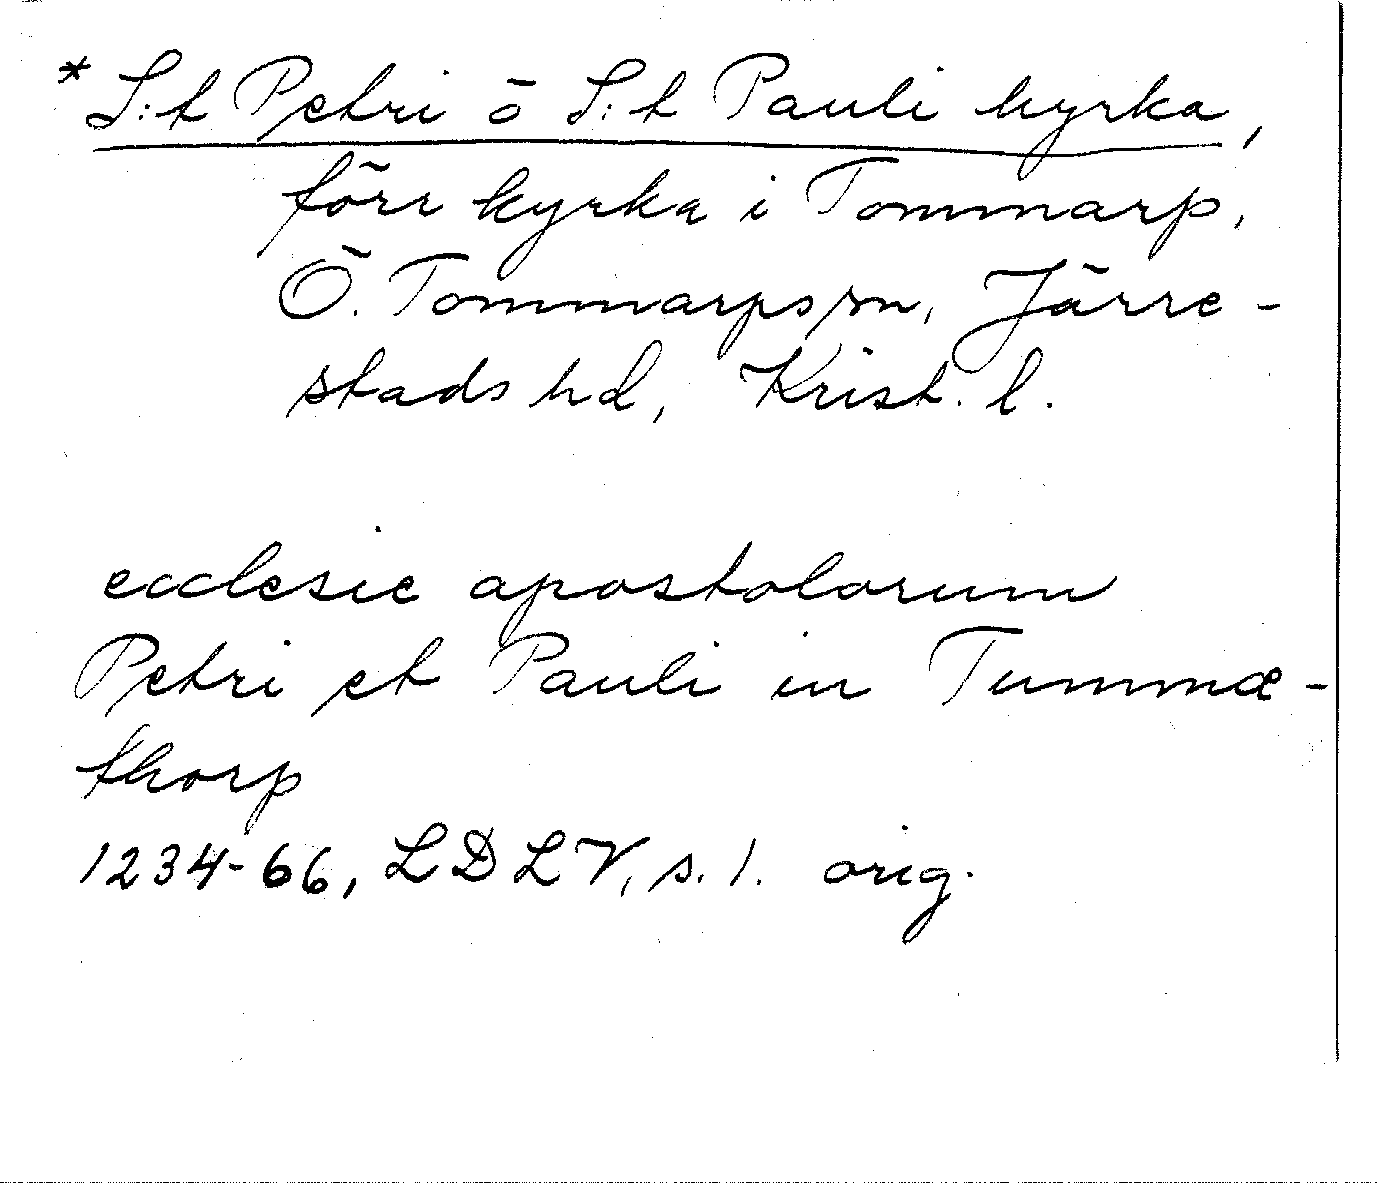 * S:t Petri o S:t Pauli kyrka,
förr kyrka i Tommarp,
Ö. Tommarps sn, Järre-
stads hd, Krist. l.
ecclesie apostolorum
Petri et Pauli in Tummæ-
thorp
1234-66, LDLV, s. 1. orig.